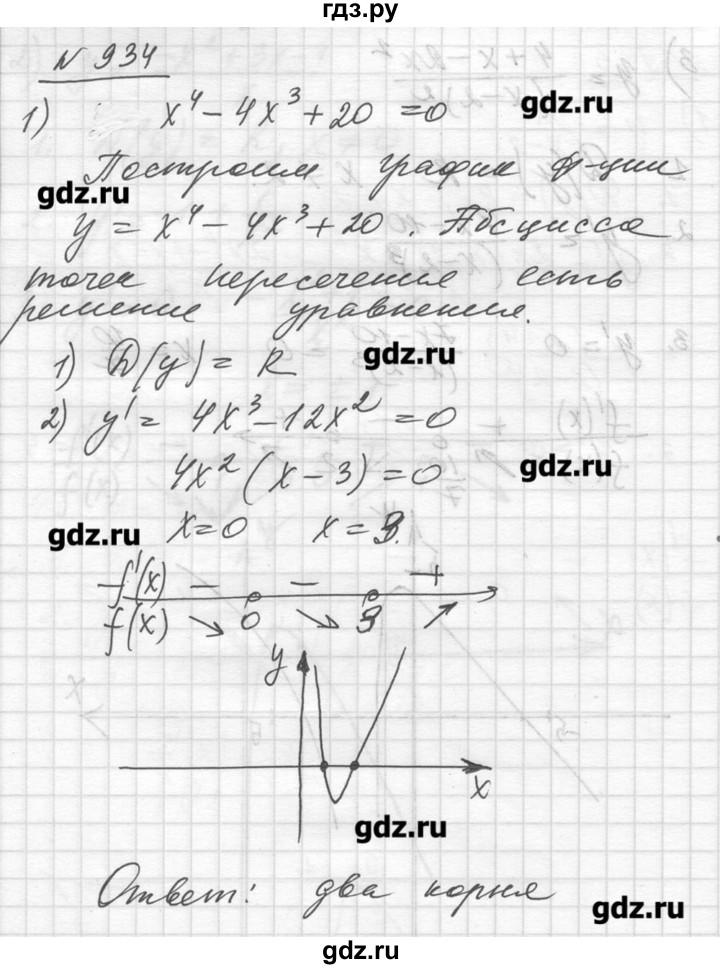 гдз.ру
N 934
1) x⁴ - 4x³ + 20 = 0
gdz.ru
Построим график ф-ции
gdz.ru
y = x⁴ - 4x³ + 20. Абсцисса
точек пересечения есть
решение уравнения.
1) D(y) = R
gdz.ru
2) y' = 4x³ - 12x² = 0
4x² (x - 3) = 0
gdz.ru
gdz.ru
x = 0 x = 3.
f'(x) - - +
f(x) ↘ 0 ↘ 3 ↗
y
x
gdz.ru
Ответ: два корня
gdz.ru
gdz.ru